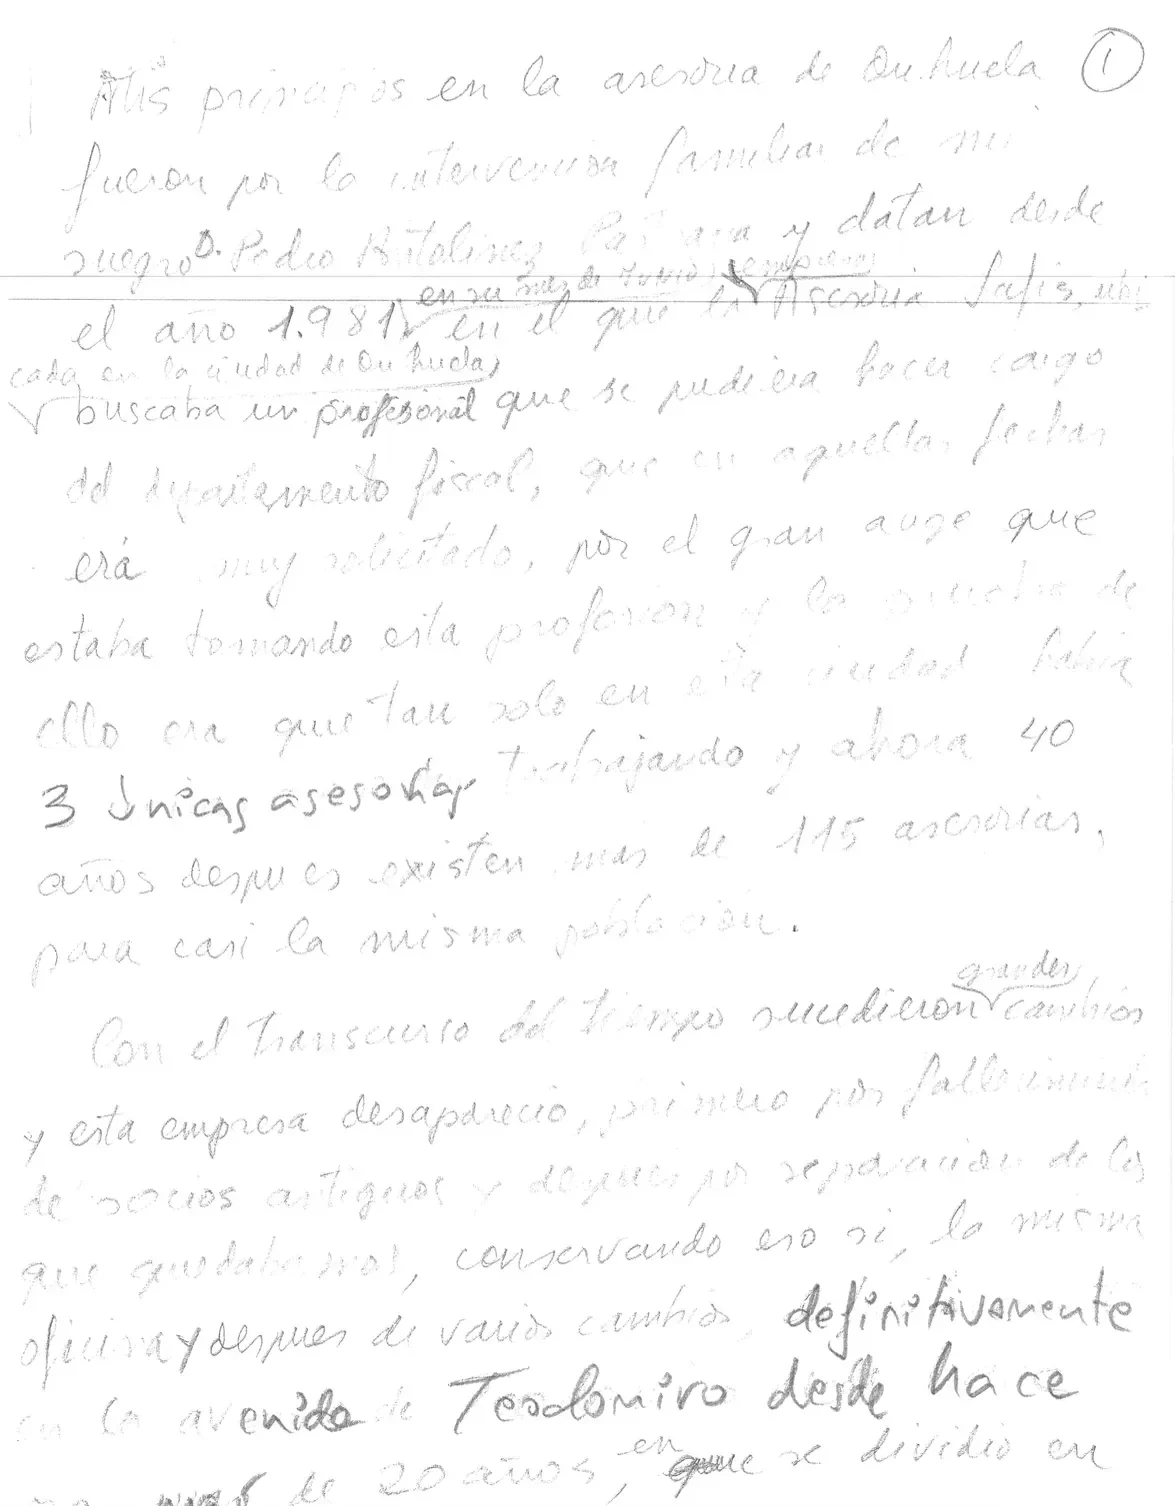 1
Mis principios en la asesoria de Orihuela
fueron por la intervención familiar de mi
suegro D. Pedro y datan desde
en su mes de Junio, empresa
el año 1.981, en el que la Asesoria Safis, ubi
cada en la ciudad de Orihuela,
buscaba un profesional que se pudiera hacer cargo
del departamento fiscal, que en aquellas fechas
erá muy solicitado, por el gran auge que
estaba tomando esta profesion y la muestra de
ello era que tan solo en esta ciudad habia
3 únicas asesorias trabajando y ahora 40
años despues existen mas de 115 asesorias,
para casi la misma población.
grandes
Con el transcurso del tiempo sucedieron cambios
y esta empresa desaparecio, primero por fallecimiento
de socios antiguos y despues por separacion de los
que quedabamos, conservando eso si, la misma
oficina y despues de varios cambios, definitivamente
en la avenida de Teodomiro desde hace
en
mas de 20 años, que se dividio en